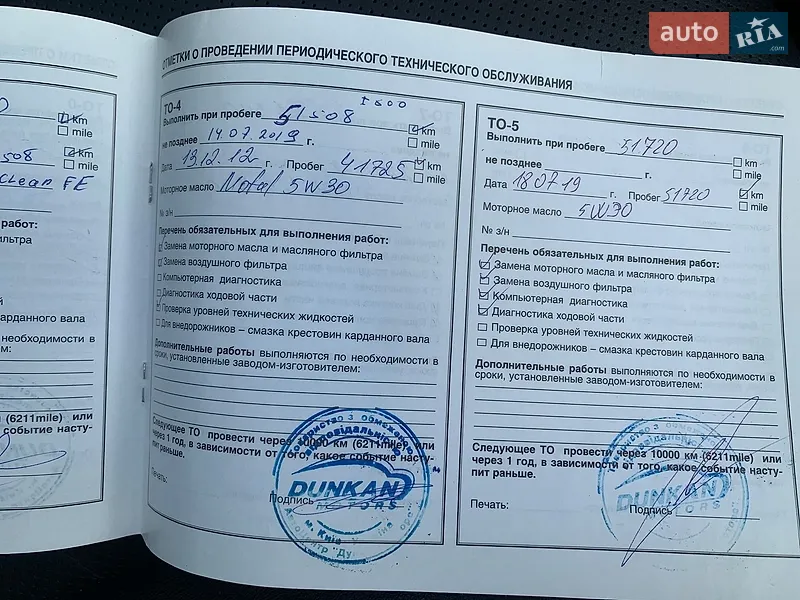 auto RIA .com
ОТМЕТКИ О ПРОВЕДЕНИИ ПЕРИОДИЧЕСКОГО ТЕХНИЧЕСКОГО ОБСЛУЖИВАНИЯ
km
mile
508 km
mile
Clean FE
работ:
фильтра
карданного вала
необходимости в
ем:
(6211mile) или
событие насту-
1500
ТО-4
Выполнить при пробеге 51508 km
mile
не позднее 14.07.2019 г.
Дата 13.12.12 г. Пробег 41725 km
mile
Моторное масло Motul 5W30
№ з/н
Перечень обязательных для выполнения работ:
Замена моторного масла и масляного фильтра
Замена воздушного фильтра
Компьютерная диагностика
Диагностика ходовой части
Проверка уровней технических жидкостей
Для внедорожников – смазка крестовин карданного вала
Дополнительные работы выполняются по необходимости в
сроки, установленные заводом-изготовителем:
Следующее ТО провести через 10000 км (6211mile) или
через 1 год, в зависимости от того, какое событие насту-
пит раньше.
Печать:
Подпись
DUNKAN
MOTORS
м. Київ
ТО-5
Выполнить при пробеге 51720 km
mile
не позднее г.
Дата 18.07.19 г. Пробег 51720 km
mile
Моторное масло 5W30
№ з/н
Перечень обязательных для выполнения работ:
Замена моторного масла и масляного фильтра
Замена воздушного фильтра
Компьютерная диагностика
Диагностика ходовой части
Проверка уровней технических жидкостей
Для внедорожников – смазка крестовин карданного вала
Дополнительные работы выполняются по необходимости в
сроки, установленные заводом-изготовителем:
Следующее ТО провести через 10000 км (6211mile) или
через 1 год, в зависимости от того, какое событие насту-
пит раньше.
Печать:
Подпись
DUNKAN
MOTORS